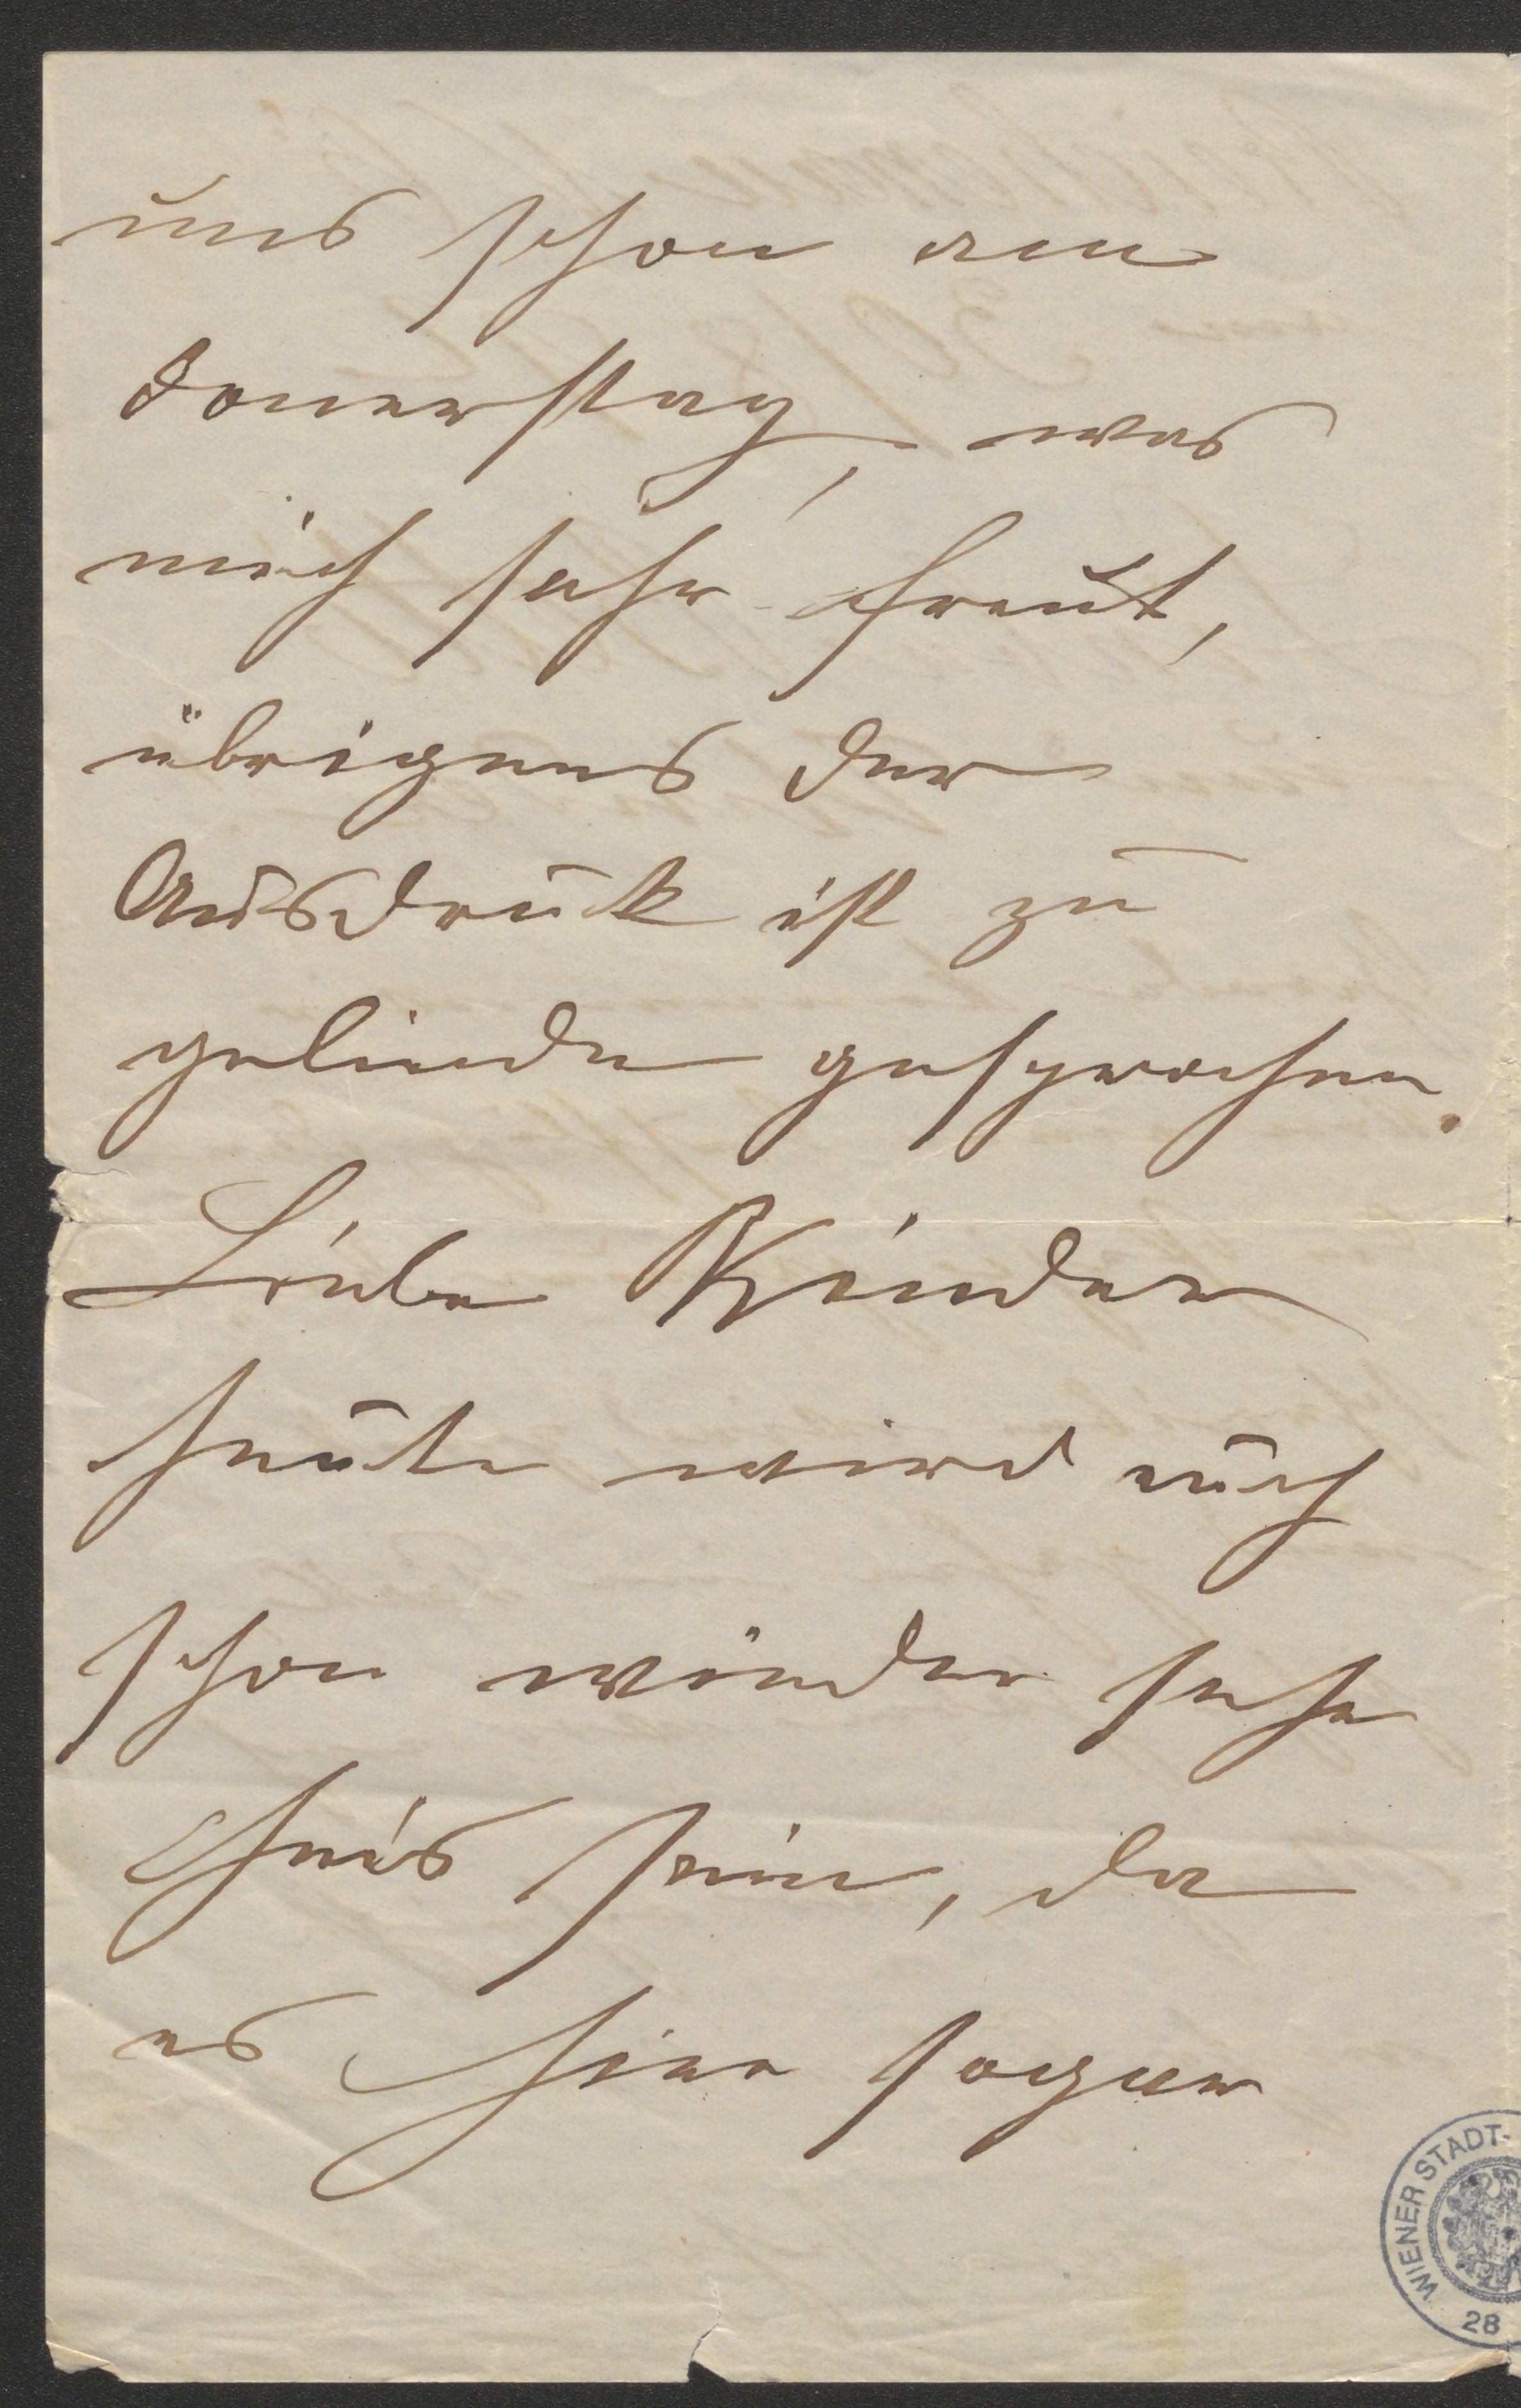 uns schon am
Donerstag, was
mich sehr freut,
übrigens der
Ausdruck ist zu
gelinde gesprochen.
Liebe Kinder
heute wird euch
schon wieder sehr
heis sein, da
es hier sogar
WIENER STADT-
28